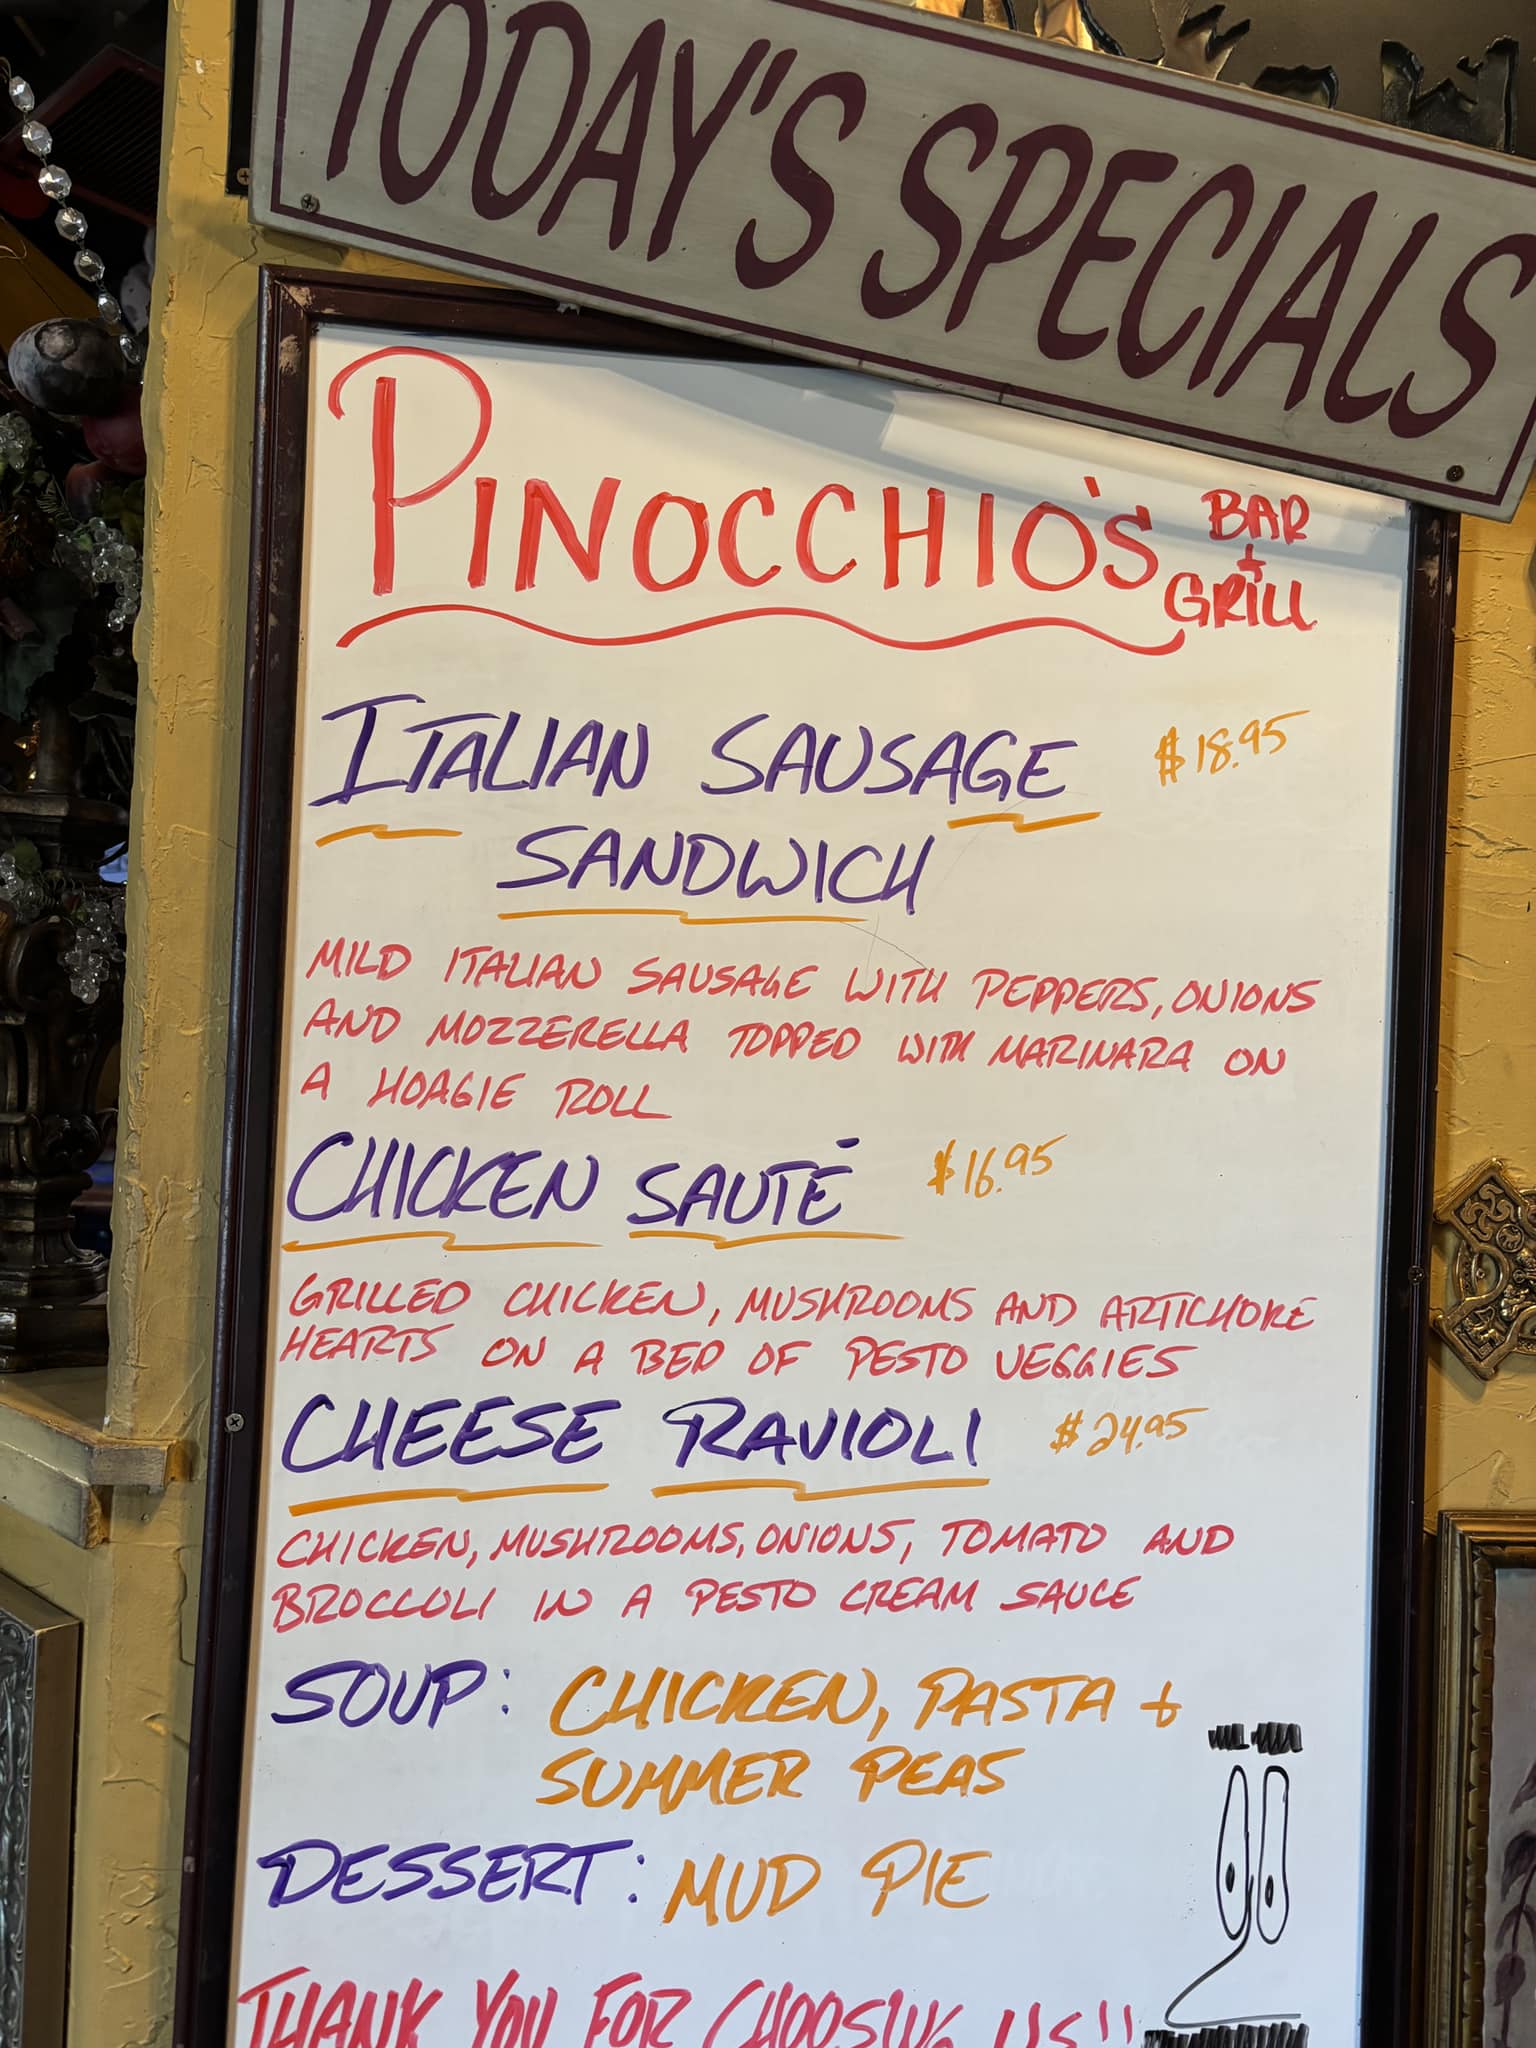 TODAY'S SPECIALS
PINOCCHIO'S BAR + GRILL
ITALIAN SAUSAGE $18.95
SANDWICH
MILD ITALIAN SAUSAGE WITH PEPPERS, ONIONS
AND MOZZERELLA TOPPED WITH MARINARA ON
A HOAGIE ROLL
CHICKEN SAUTÉ $16.95
GRILLED CHICKEN, MUSHROOMS AND ARTICHOKE
HEARTS ON A BED OF PESTO VEGGIES
CHEESE RAVIOLI $24.95
CHICKEN, MUSHROOMS, ONIONS, TOMATO AND
BROCCOLI IN A PESTO CREAM SAUCE
SOUP: CHICKEN, PASTA +
SUMMER PEAS
DESSERT: MUD PIE
THANK YOU FOR CHOOSING US!!